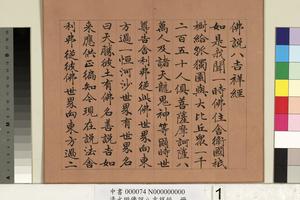 佛說八吉祥經
如是我聞一時佛住舍衛國祇
樹給孤獨園與大比丘眾一千
二百五十人俱菩薩摩訶薩八
萬人及諸天龍鬼神等爾時世
尊告舍利弗從此佛世界向東
方過一恒河沙世界有世界名
曰天勝彼土有佛名善說吉如
來應供正徧知今現在說法舍
利弗從彼佛世界向東方過二
中書 000074 N000000000
1